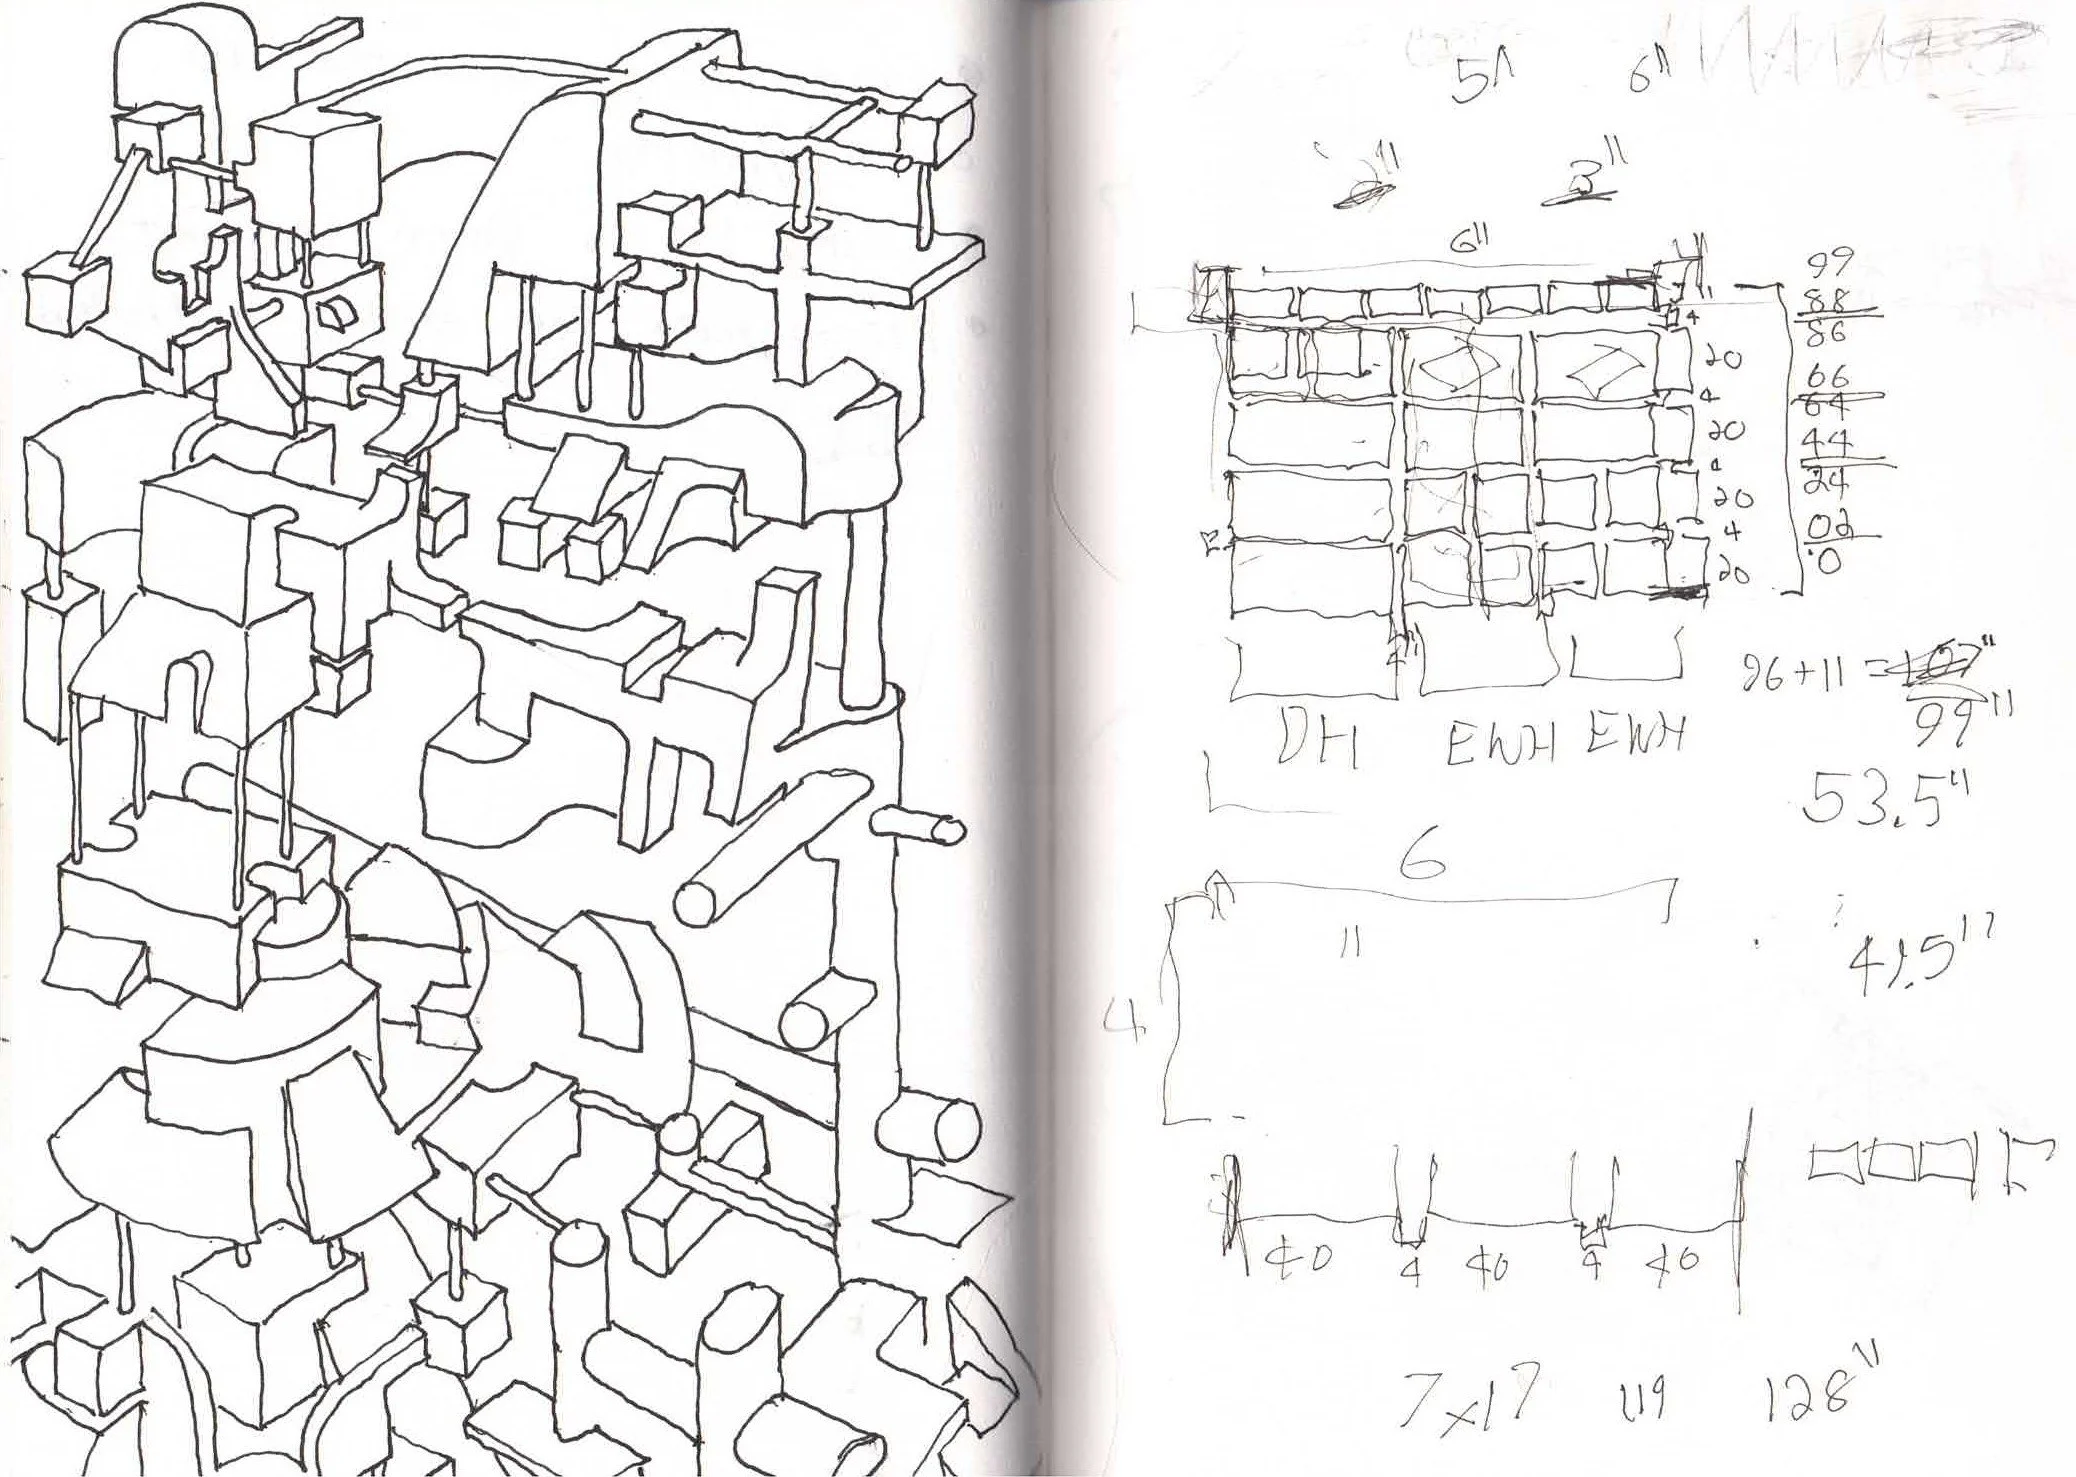 5"
6"
2"
3"
6"
99
88
86
66
64
44
24
02
0
4
20
4
20
4
20
4
20
4"
86+11=107"
99"
DH EWH EWH
53.5"
6
11
41.5"
4
40 4 40 4 40
7x17 119 128"